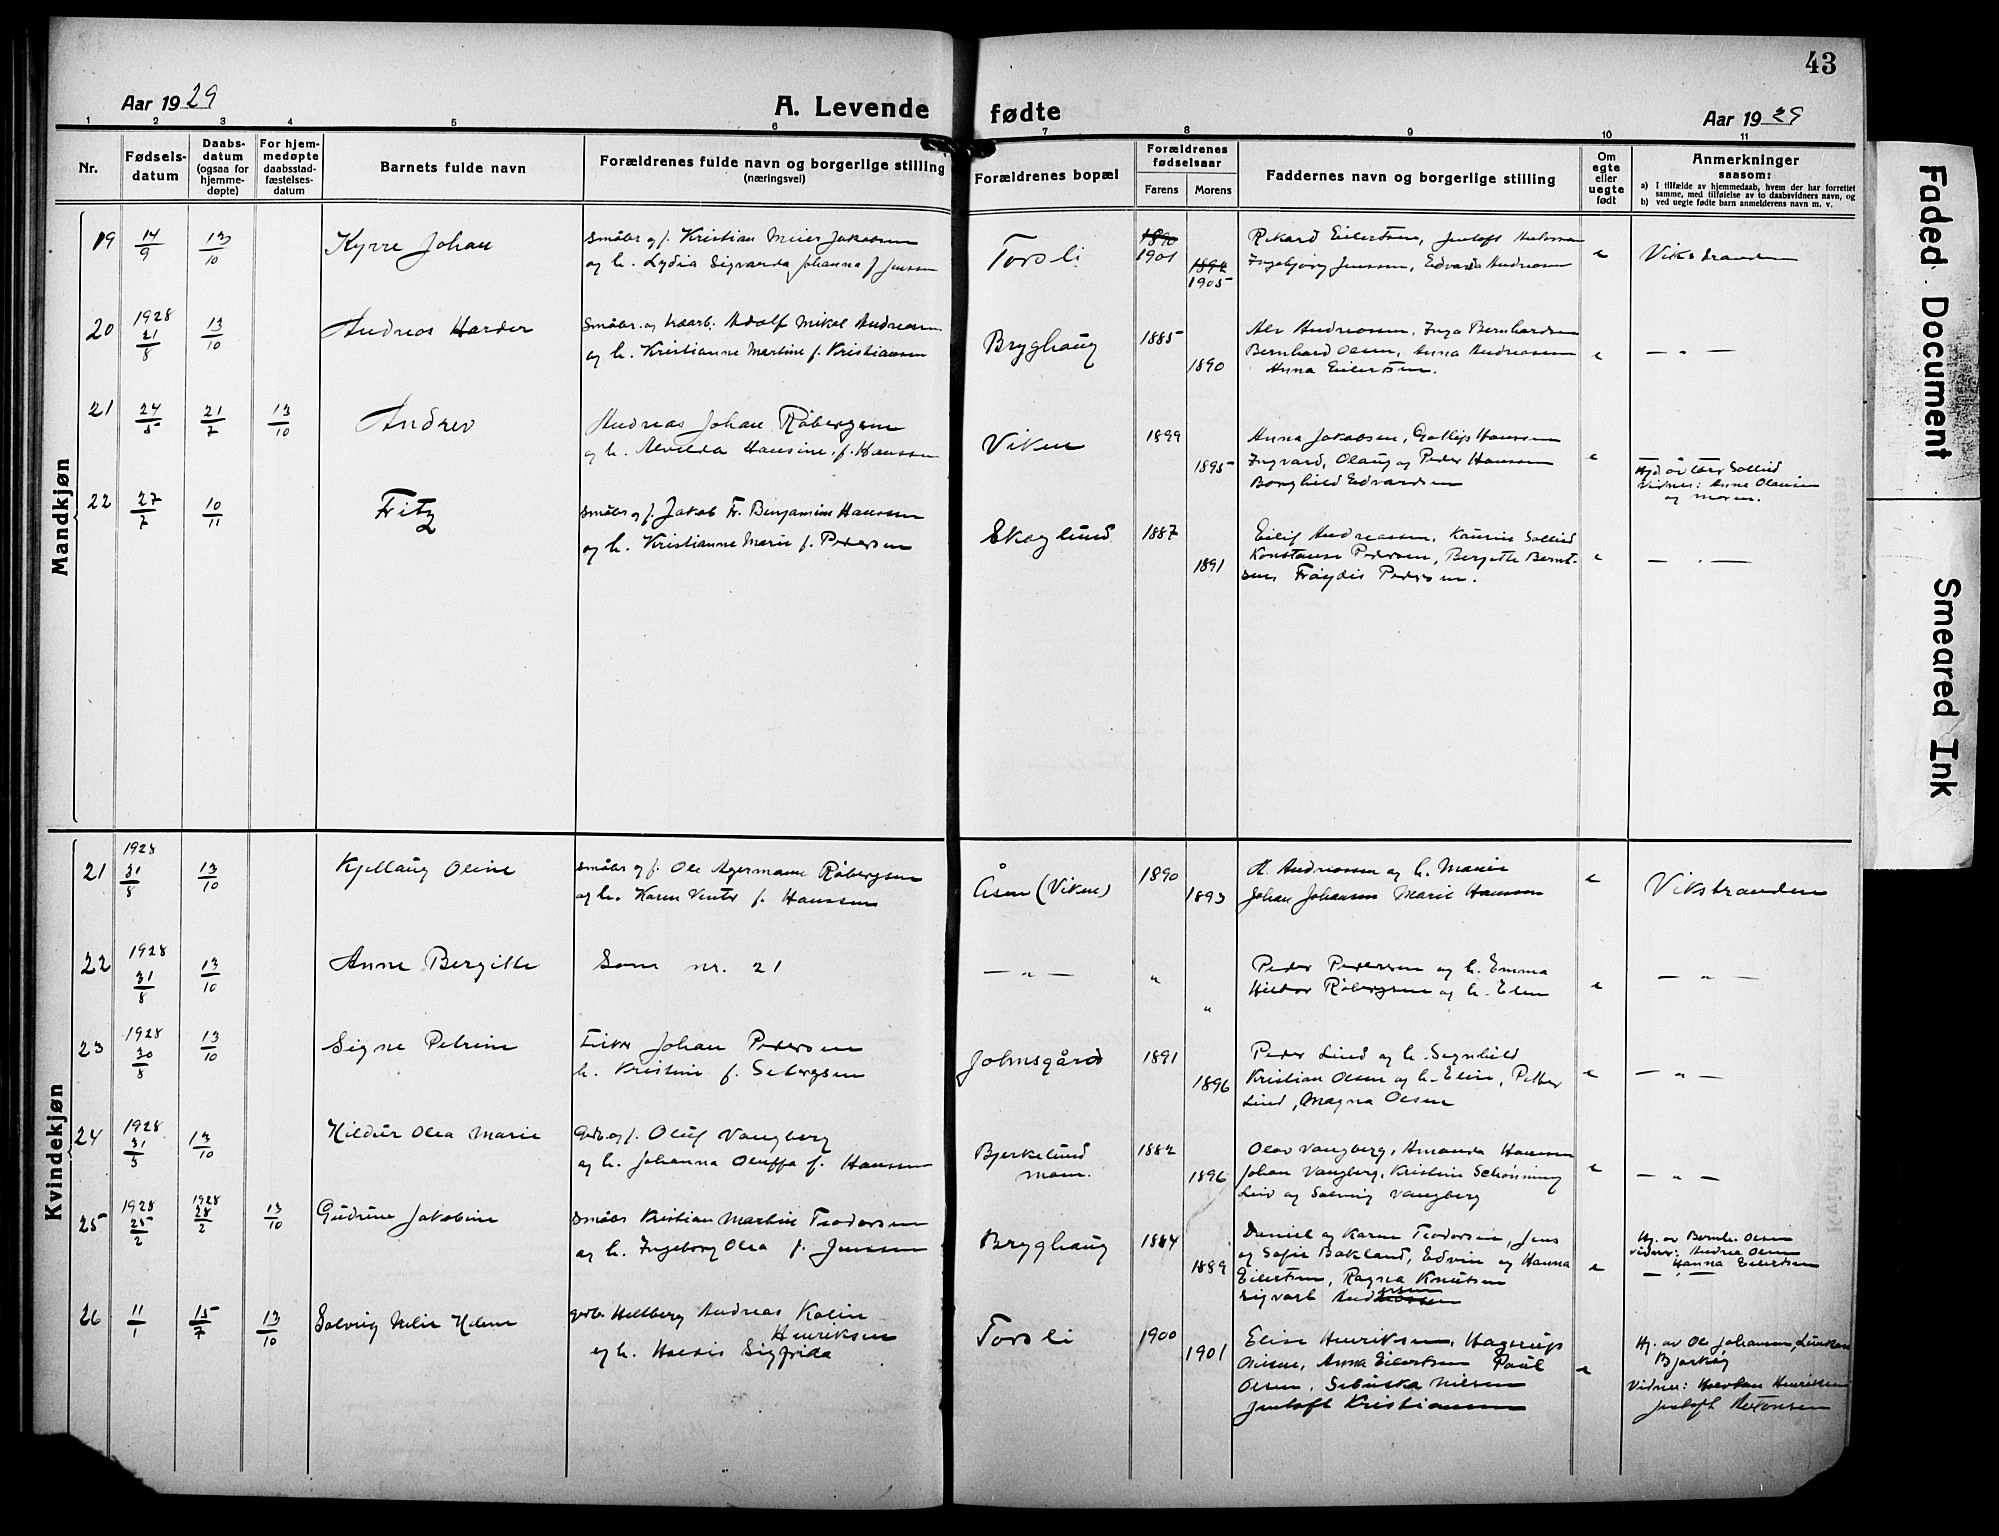 43
Aar 1929
A. Levende fødte
Aar 1929
1 2 3 4 5 6 7 8 9 10 11
Nr.
Fødsels-
datum
Daabs-
datum
(ogsaa for
hjemme-
døpte)
For hjem-
medøpte
daabsstad-
fæstelses-
datum
Barnets fulde navn
Forældrenes fulde navn og borgerlige stilling
(næringsvei)
Forældrenes bopæl
Forældrenes
fødselsaar
Farens Morens
Faddernes navn og borgerlige stilling
Om
egte
eller
uegte
født
Anmerkninger
saasom:
a) I tilfælde av hjemmedaab, hvem der har forrettet
samme, med tilføielse av to daabsvidners navn, og
b) ved uegte fødte barn anmelderens navn m. v.
Mandkjøn
19 14/9 13/10 Kyrre Johan
Småbr og f. Kristian Meier Jakobsen
og h. Lydia Sigvarda Johanna f. Jenssen
Torsli 1890 1901 1892 1905
Rikard Eilertsen, Jentoft
Ingebjørg Jenssen, Edvarda Andreasen
e Vikstranden
20 1928 21/8 13/10 Andreas Harder
Småbr. og Adolf Mikal Andreasen
og h. Kristianne Martine f. Kristiansen
Bryghaug 1885 1890
Alv Andreassen, Inga Bernhardsen
Bernhard Olsen, Anna Andreassen
Anna Eilertsen.
e — " —
21 24/5 21/7 13/10 Andrev
Andreas Johan Røbergsen
og h. Alvilda Hansine, f. Hanssen
Viken 1899 1895
Anna Jakobsen, Hanssen
Ingvard, Olaug og Peder Hanssen
Borghild Edvardsen
e
Hjd. av lær. Sollid
Vidner: Anne Olausen
og moren.
22 27/7 10/11 Fritz
Småbr og f. Jakob Fr. Benjamin Hanssen
og h. Kristianne Marie f. Pedersen
Skoglund 1887 1891
Eilif Andreassen, Sollid
Konstanse Pedersen, Bergitte Bernt-
sen, Frøydis Pedersen.
e — " —
Kvindekjøn
21 1928 31/8 13/10 Kjellaug Oline
Småbr og f. Ole Agermann Røbergsen
og h. Karen f. Hanssen
Åsen (Viken) 1890 1893
A. Andreassen og h. Marie
Johan Johansen Marie Hanssen
e Vikstranden
22 1928 31/8 13/10 Anne Bergitte
Som nr. 21
— " — " "
Peder Pedersen og h. Emma
Røbergsen og h. Elen
e — " —
23 1928 30/8 13/10 Signe Petrine
Fisker Johan Pedersen
h. Kristine f. Sebergsen
Johnsgård 1891 1896
Peder Lind og h. Segnhild
Kristian Olsen og h. Eline, Petter
Lind, Magna Olsen
e — " —
24 1928 31/5 13/10 Hildur Olea Marie
Gbr. og f. Oluf Vangberg
og h. Johanna Oluffa f. Hansen
Bjerkelund
1882 1896
Olav Vangberg, Amanda Hanssen
Johan Vangberg, Kristine Schønning
Lind og Solveig Vangberg
e — " —
25 1928 25/2 1928 28/2 13/10 Gudrun Jakobine
Småbr Kristian Martin Teodorsen
og h. Ingeborg Olea f. Jenssen
Bryghaug 1884 1889
Daniel og Karen Teodorsen, Jens
og Sofie Bakland, Edvin og Hanna
Eilertsen, Ragna Knutsen
e
Hj. av Bernh. Olsen
vidner: Andrea Olsen
Hanna Eilertsen
— " —
26 11/1 15/7 13/10 Solveig Helene
Andreas Kolin
Henriksen
og h. Haldis Sigfrida
Torsli 1900 1901
Elise Henriksen, Hagerup
Nilsen, Anna Eilertsen Paul
Olsen, Nilsen
Jentoft Kristiansen
e
Hj. av Ole Johansen,
Bjarkøy
Vidner: Henriksen
Jentoft
Faded Document
Smeared Ink